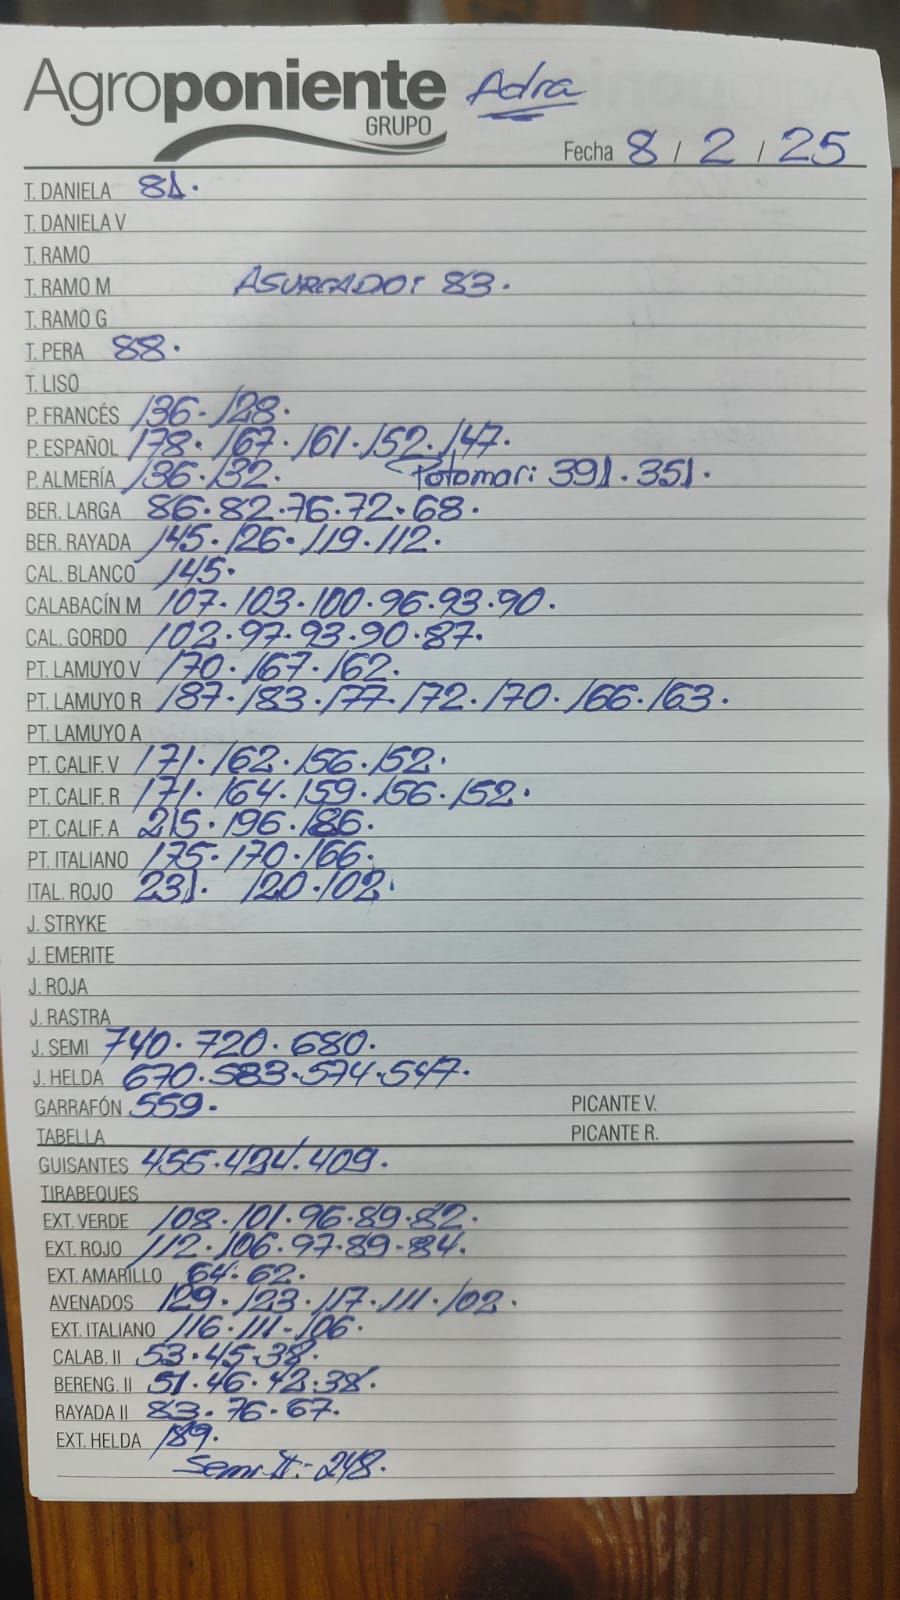 Agroponiente Adra
GRUPO
Fecha 8 / 2 / 25
T. DANIELA 81.
T. DANIELA V
T. RAMO
T. RAMO M ASURCADO: 83.
T. RAMO G
T. PERA 88.
T. LISO
P. FRANCÉS 136. 128.
P. ESPAÑOL 178. 167. 161. 152. 147.
P. ALMERÍA 136. 132. Potomari 391. 351.
BER. LARGA 86. 82. 76. 72. 68.
BER. RAYADA 145. 126. 119. 112.
CAL. BLANCO 145.
CALABACÍN M 107. 103. 100. 96. 93. 90.
CAL. GORDO 102. 97. 93. 90. 87.
PT. LAMUYO V 170. 167. 162.
PT. LAMUYO R 187. 183. 177. 172. 170. 166. 163.
PT. LAMUYO A
PT. CALIF. V 171. 162. 156. 152.
PT. CALIF. R 171. 164. 159. 156. 152.
PT. CALIF. A 215. 196. 186.
PT. ITALIANO 175. 170. 166.
ITAL. ROJO 231. 120. 102.
J. STRYKE
J. EMERITE
J. ROJA
J. RASTRA
J. SEMI 740. 720. 680.
J. HELDA 670. 583. 574. 547.
GARRAFÓN 559. PICANTE V.
TABELLA PICANTE R.
GUISANTES 455. 424. 409.
TIRABEQUES
EXT. VERDE 108. 101. 96. 89. 82.
EXT. ROJO 112. 106. 97. 89. 84.
EXT. AMARILLO 64. 62.
AVENADOS 129. 123. 117. 111. 102.
EXT. ITALIANO 116. 111. 106.
CALAB. II 53. 45. 38.
BERENG. II 51. 46. 42. 38.
RAYADA II 83. 76. 67.
EXT. HELDA 189.
Semi II: 248.